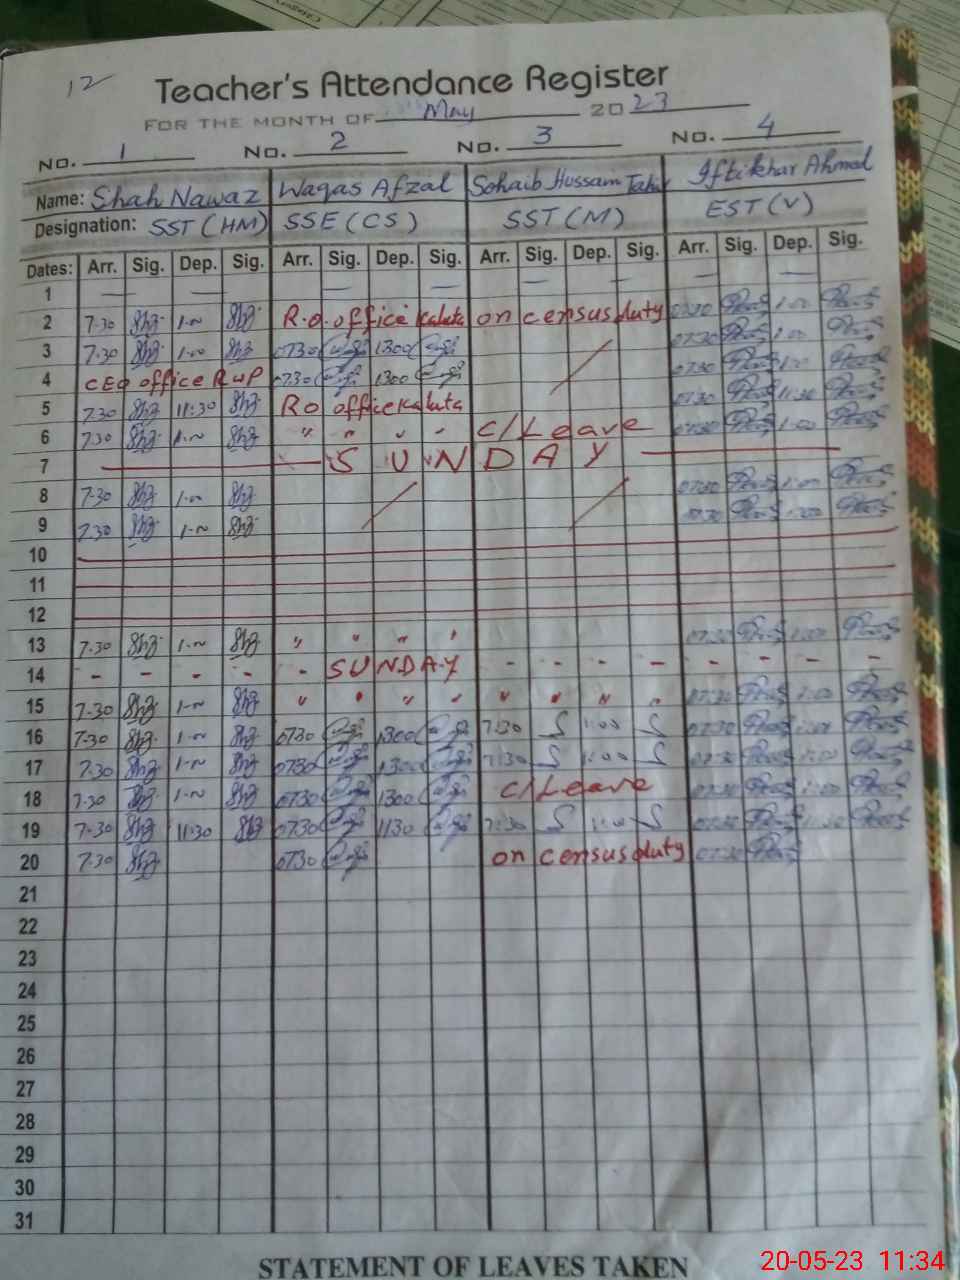 12
Teacher's Attendance Register
FOR THE MONTH OF May 2023
No. 1 No. 2 No. 3 No. 4
Name: Shah Nawaz Waqas Afzal Sohaib Hussam Tahir Iftikhar Ahmad
Designation: SST (HM) SSE (CS) SST (M) EST (V)
Dates: Arr. Sig. Dep. Sig. Arr. Sig. Dep. Sig. Arr. Sig. Dep. Sig. Arr. Sig. Dep. Sig.
1 — — — — — —
2 7.30 1.00 R.O. office on census duty 0730 1:00
3 7.30 1.00 0730 1300 0730 1:00
4 CEO office RWP 0730 1300 0730 1:00
5 7.30 11:30 RO office 0730 11:30
6 7.30 1.00 " " " " C/Leave 0730 1:00
7 SUNDAY
8 7.30 1.00 0730 1:00
9 7.30 1.00 0730 1:00
10
11
12
13 7.30 1.00 " " " " 0730 1:00
14 - - - - - SUNDAY - - - - - - - -
15 7.30 1.00 " " " " " " " " 0730 1:00
16 7.30 1.00 0730 1300 7:30 1:00 0730 1:00
17 7.30 1.00 0730 1300 7:30 1:00 0730 1:00
18 7.30 1.00 0730 1300 C/Leave 0730 1:00
19 7.30 11:30 0730 1130 7:30 0730 11:30
20 7.30 0730 on census duty 0730
21
22
23
24
25
26
27
28
29
30
31
STATEMENT OF LEAVES TAKEN
20-05-23 11:34